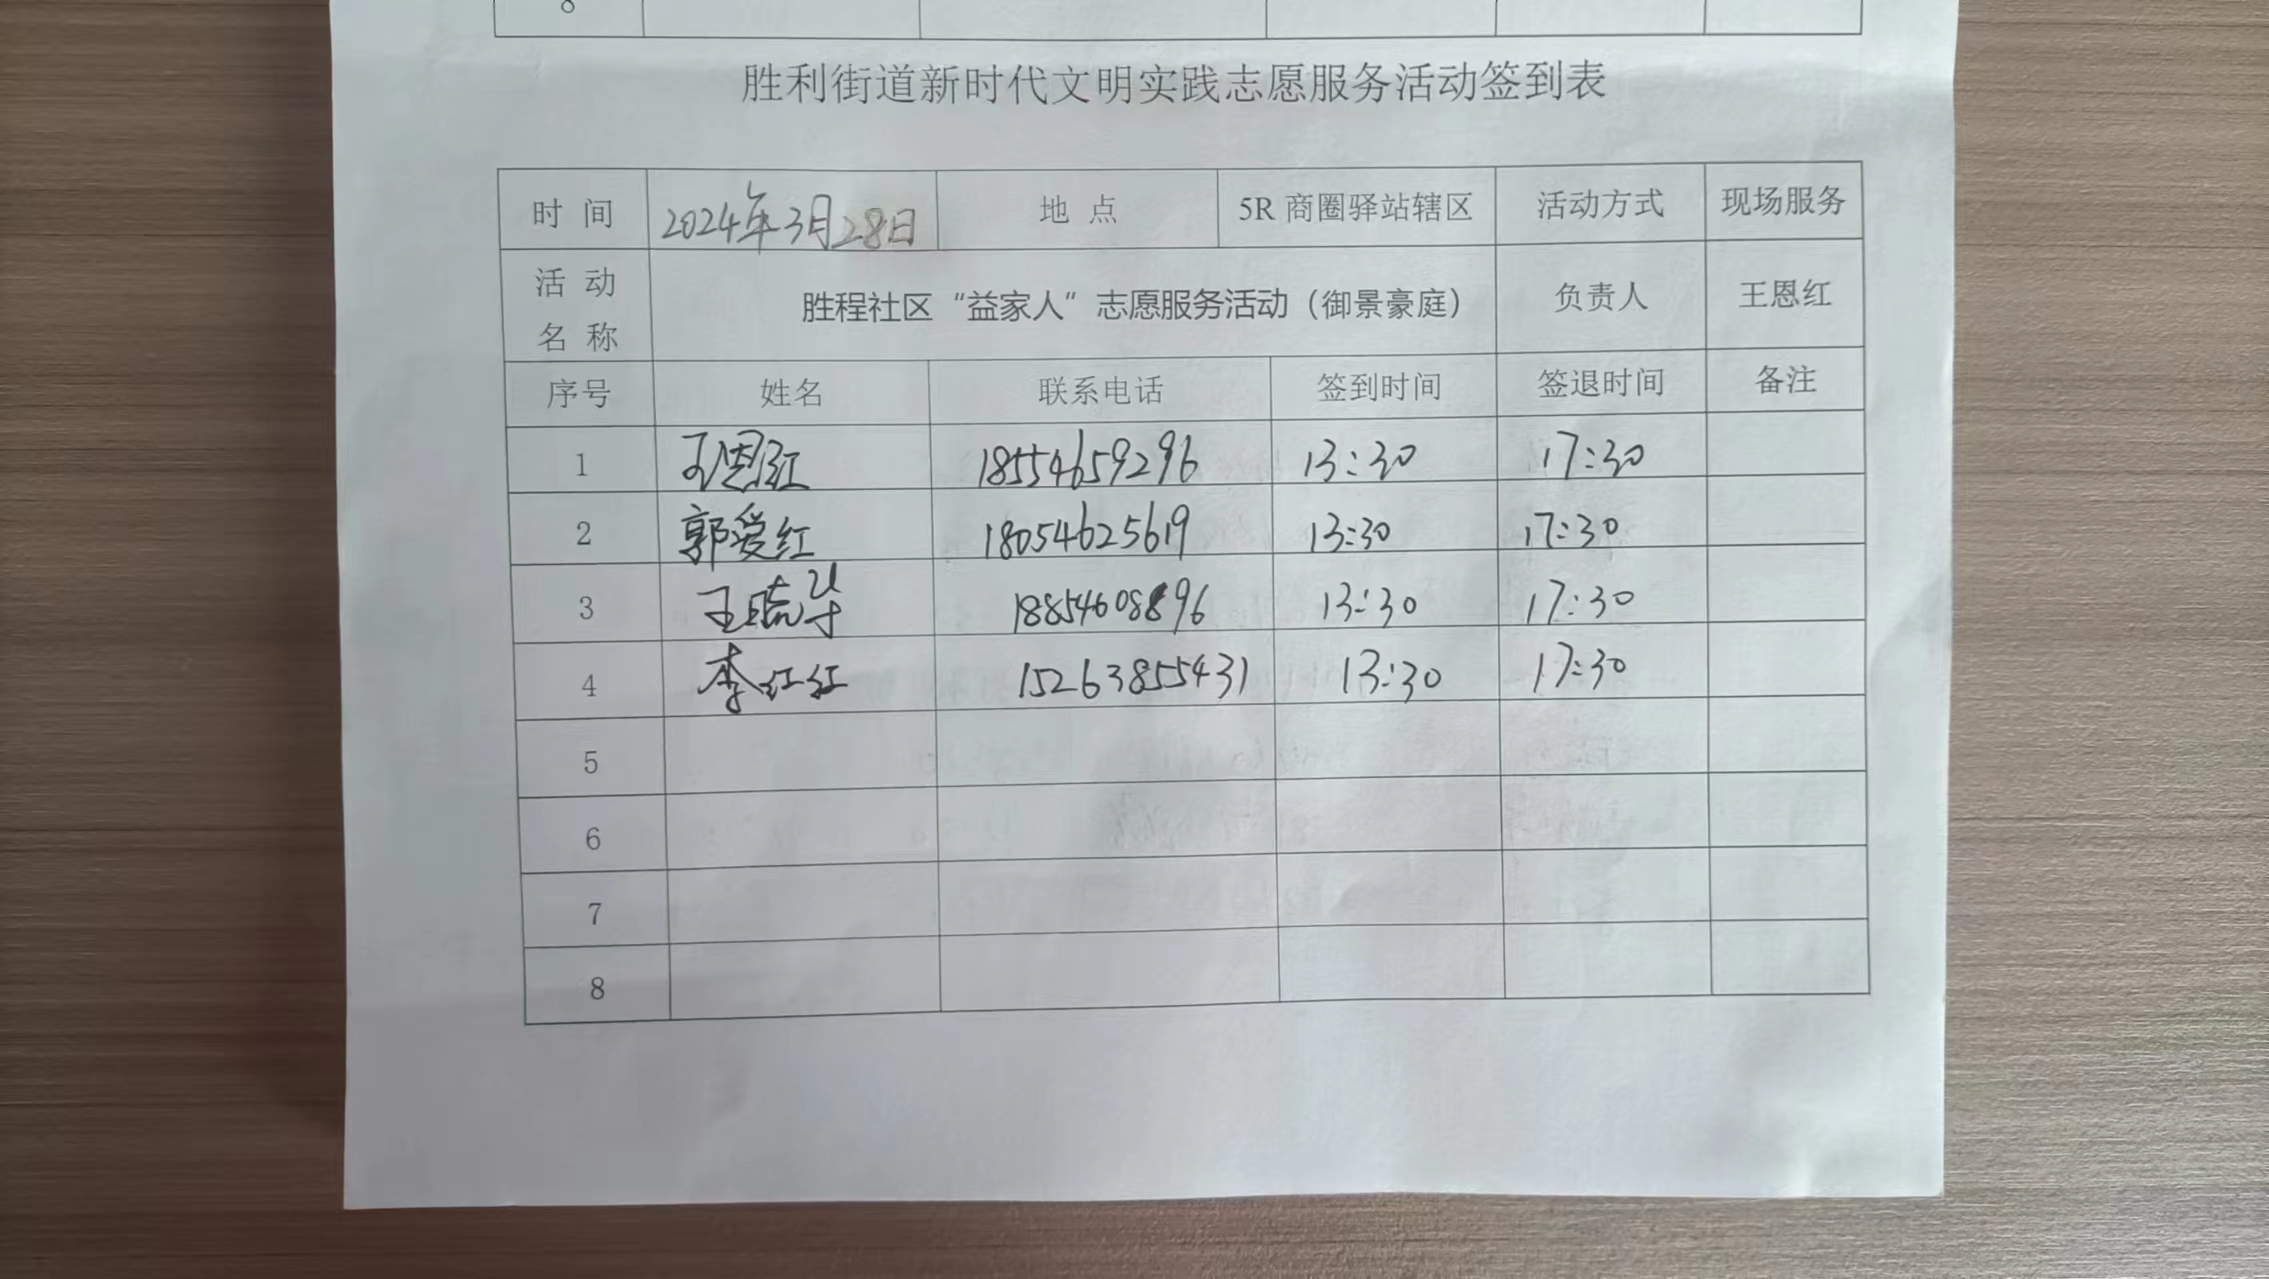 8
胜利街道新时代文明实践志愿服务活动签到表
时 间 2024年3月28日 地 点 5R 商圈驿站辖区 活动方式 现场服务
活 动
名 称 胜程社区“益家人”志愿服务活动（御景豪庭） 负责人 王恩红
序号 姓名 联系电话 签到时间 签退时间 备注
1 王恩红 18554659296 13:30 17:30
2 郭爱红 18054625619 13:30 17:30
3 王晓华 18854608896 13:30 17:30
4 李红红 15263855431 13:30 17:30
5
6
7
8